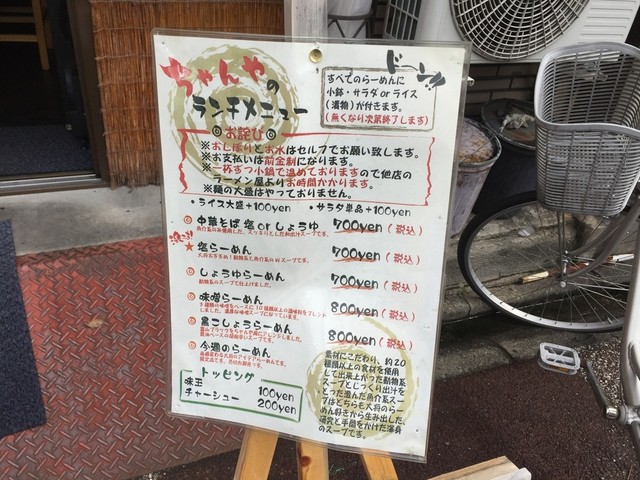 ちゃんやの
ランチメニュー
ドーン!!
すべてのらーめんに
小鉢・サラダorライス
(漬物)が付きます。
(無くなり次第終了します)
◎お詫び◎
※おしぼりとお水はセルフでお願い致します。
※お支払いは前金制になります。
※一杯ずつ小鍋で温めておりますので他店の
ラーメン屋よりお時間かかります。
※麺の大盛はやっておりません。
・ライス大盛+100yen ・サラダ単品+100yen
◎中華そば 塩orしょうゆ 700yen(税込)
★塩らーめん 700yen(税込)
◎しょうゆらーめん 700yen(税込)
動物系のスープで仕上げました。
◎味噌らーめん 800yen(税込)
◎黒こしょうらーめん 800yen(税込)
◎今週のらーめん
トッピング
味玉 100yen
チャーシュー 200yen
素材にこだわり、約20
種類以上の食材を使用
して出来上がった動物系
スープとじっくり出汁を
とった澄んだ魚介系スー
プはどちらも大将のらー
めん好きから生み出した、
研究と手間をかけた渾身
のスープです。